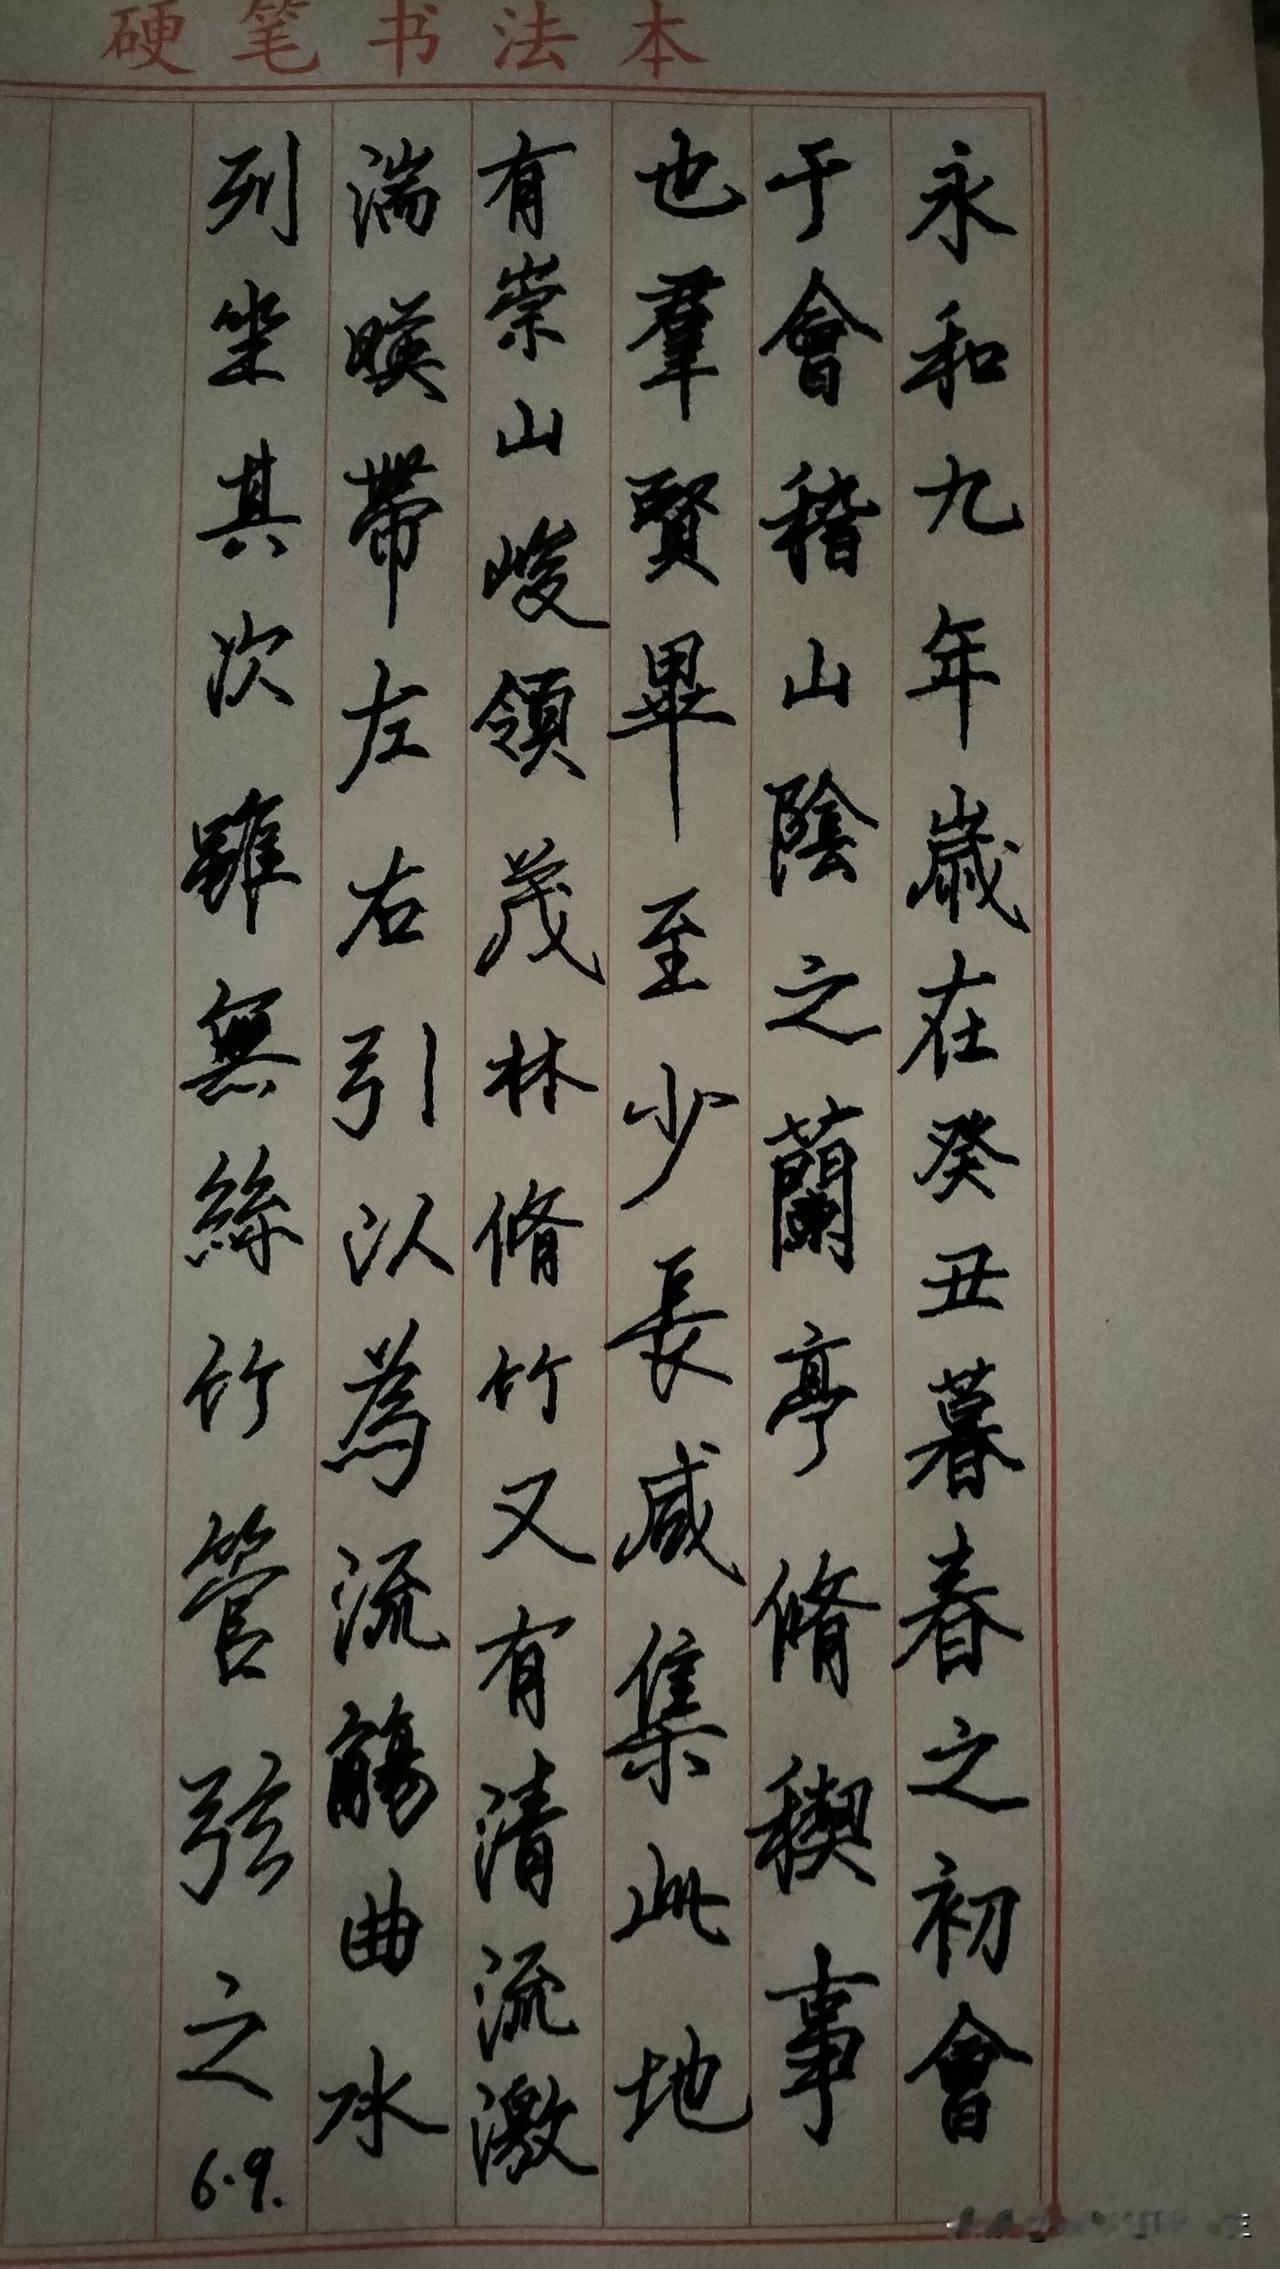 硬笔书法本
永和九年歲在癸丑暮春之初會
于會稽山陰之蘭亭脩稧事
也羣賢畢至少長咸集此地
有崇山峻領茂林脩竹又有清流激
湍暎帶左右引以為流觴曲水
列坐其次雖無絲竹管弦之
6.9.